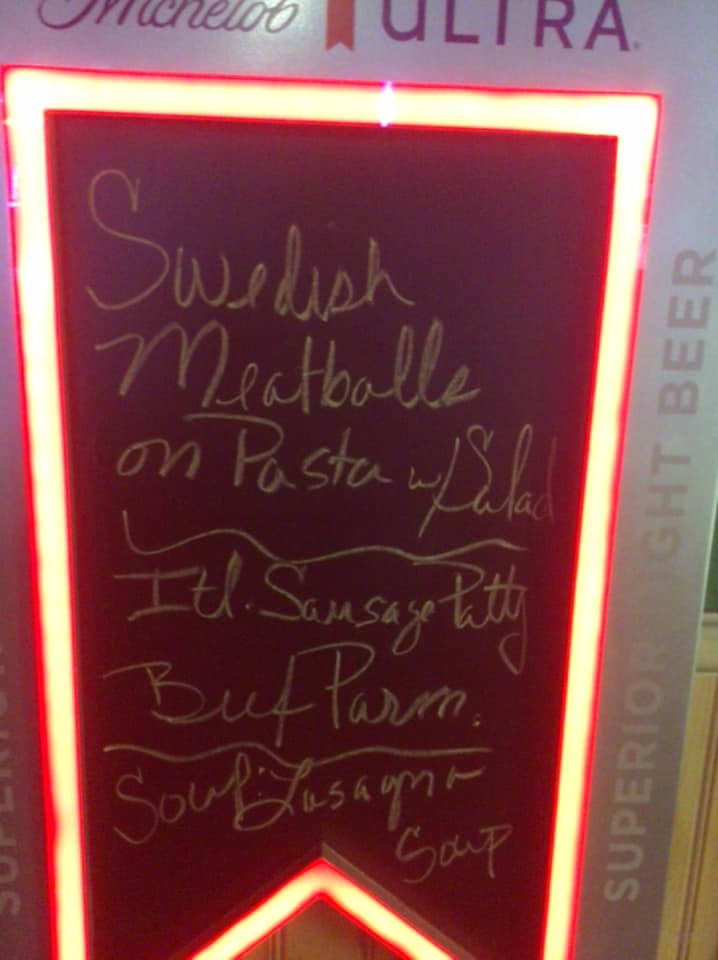 Michelob ULTRA
Swedish
Meatballs
on Pasta w/ Salad
Itl. Sausage Patty
Beef Parm.
Soup: Lasagna
Soup
SUPERIOR LIGHT BEER
SUPERIOR